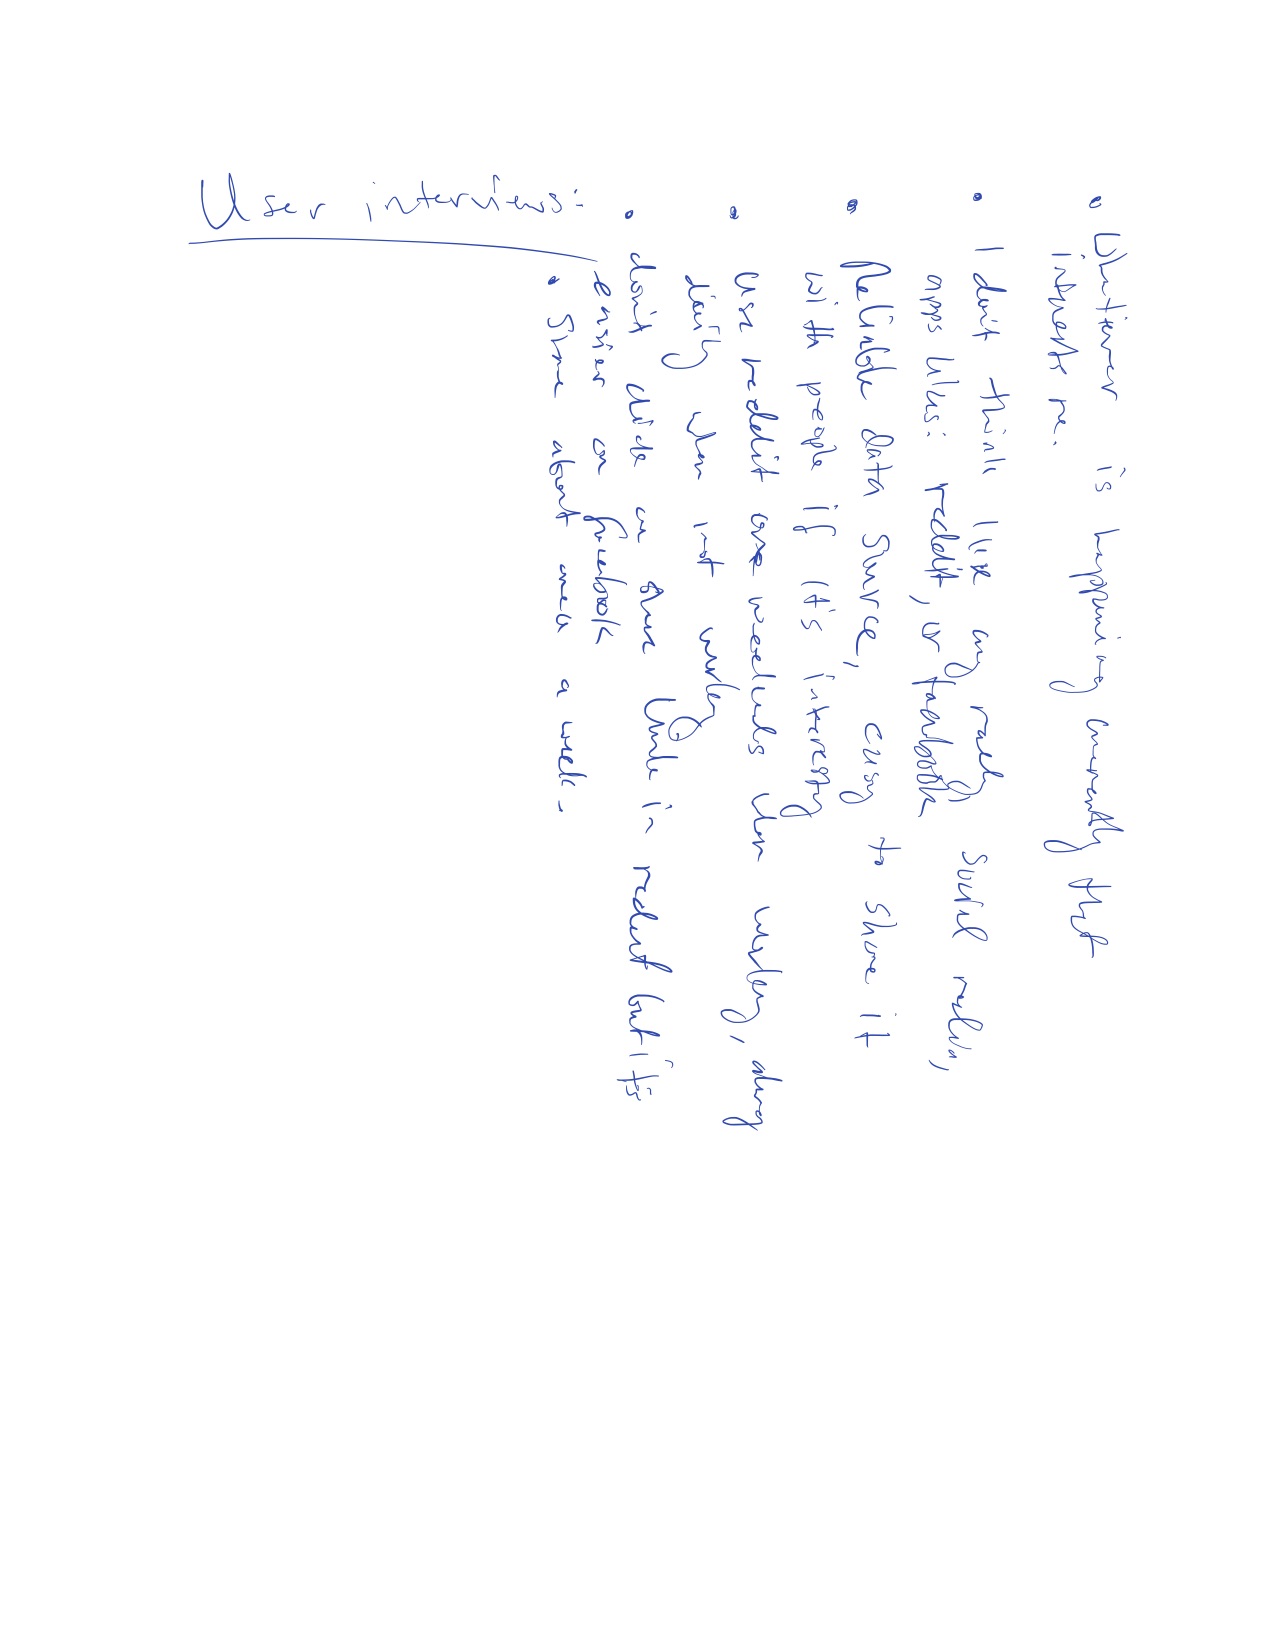 User interviews:
• Whatever is happening currently that
interests me.
• I don't think I use any really, social media,
apps like: reddit, or facebook
• Reliable data source, easy to share it
with people if it's interesting
• use reddit on weekends when working, along
daily when not working
• don't on share in reddit but it's
easier on facebook
• Share about once a week.